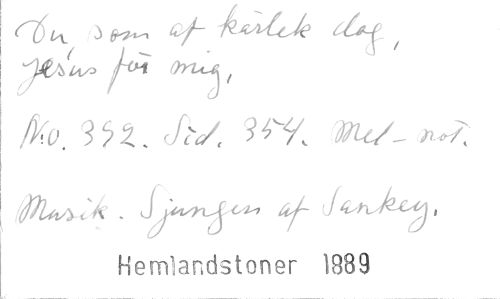 Du, som af kärlek dog,
Jesus för mig,
No. 392. Sid. 354. Mel-not.
Musik. Sjungen af Sankey.
Hemlandstoner 1889